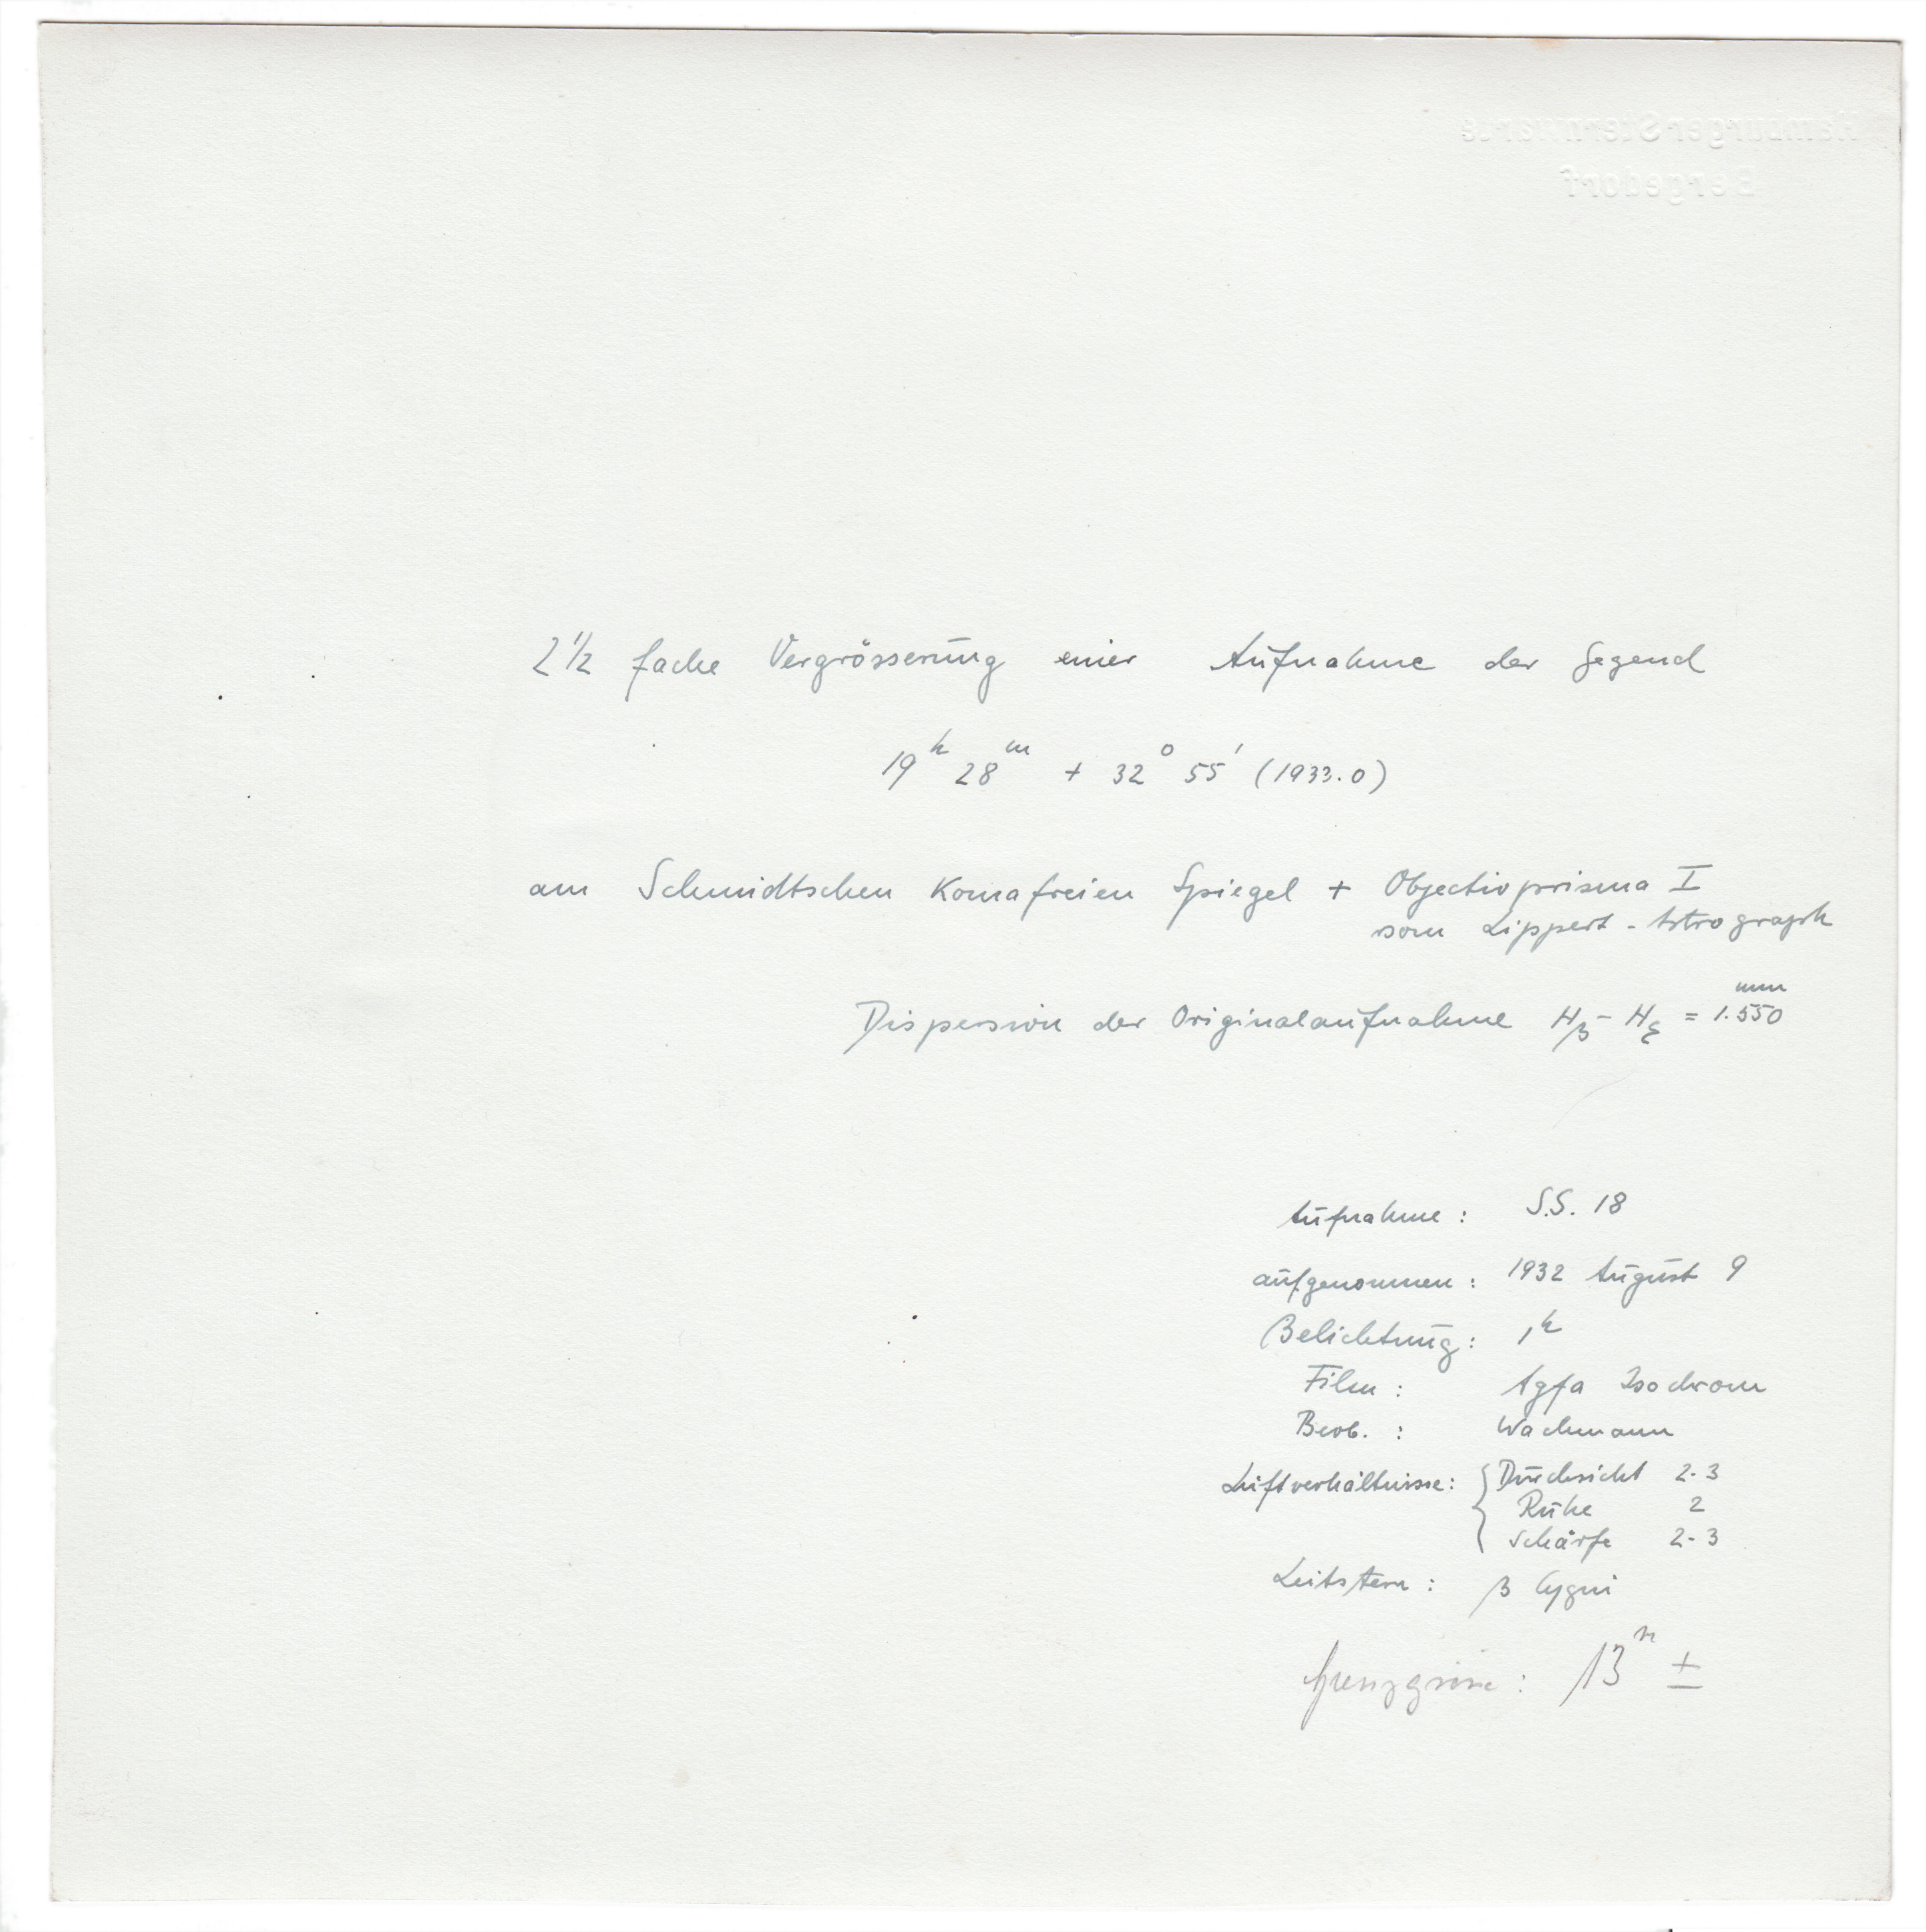 Hamburger Sternwarte
Bergedorf
2 1/2 fache Vergrösserung einer Aufnahme der Gegend
19ʰ 28ᵐ + 32° 55' (1933.0)
am Schmidtschen Komafreien Spiegel + Objectivprisma I
vom Lippert-Astrograph
Dispersion der Originalaufnahme Hβ - Hε = 1.550 mm
Aufnahme: S.S. 18
aufgenommen: 1932 August 9
Belichtung: 1ʰ
Film: Agfa Isochrom
Beob.: Wachmann
Luftverhältnisse: { Durchsicht 2-3
Ruhe 2
Schärfe 2-3
Leitstern: β Cygni
Grenzgrösse: 13ᵐ ±